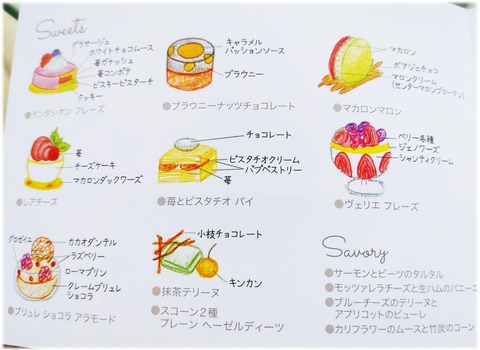 Sweets
グラサージュ
ホワイトチョコムース
苺ガナッシュ
苺コンポテ
ビスキーピスタチオ
クッキー
●タンタシオン フレーズ
キャラメル
パッションソース
ブラウニー
●ブラウニーナッツチョコレート
マカロン
ポアジェチョコ
マロンクリーム
(センターマロングローケン)
●マカロンマロン
苺
チーズケーキ
マカロンダックワーズ
●レアチーズ
チョコレート
ピスタチオクリーム
パフペストリー
苺
●苺とピスタチオ パイ
ベリー各種
ジェノワーズ
シャンティクリーム
●ヴェリエ フレーズ
グロゼイユ
カカオダンテル
ラズベリー
ローマプリン
クレームブリュレ
ショコラ
●ブリュレ ショコラ アラモード
小枝チョコレート
キンカン
●抹茶テリーヌ
●スコーン2種
プレーン ヘーゼルディーツ
Savory
●サーモンとビーツのタルタル
●モッツァレラチーズと生ハムのパニーニ
●ブルーチーズのテリーヌと
アプリコットのピューレ
●カリフラワーのムースと竹炭のコーン